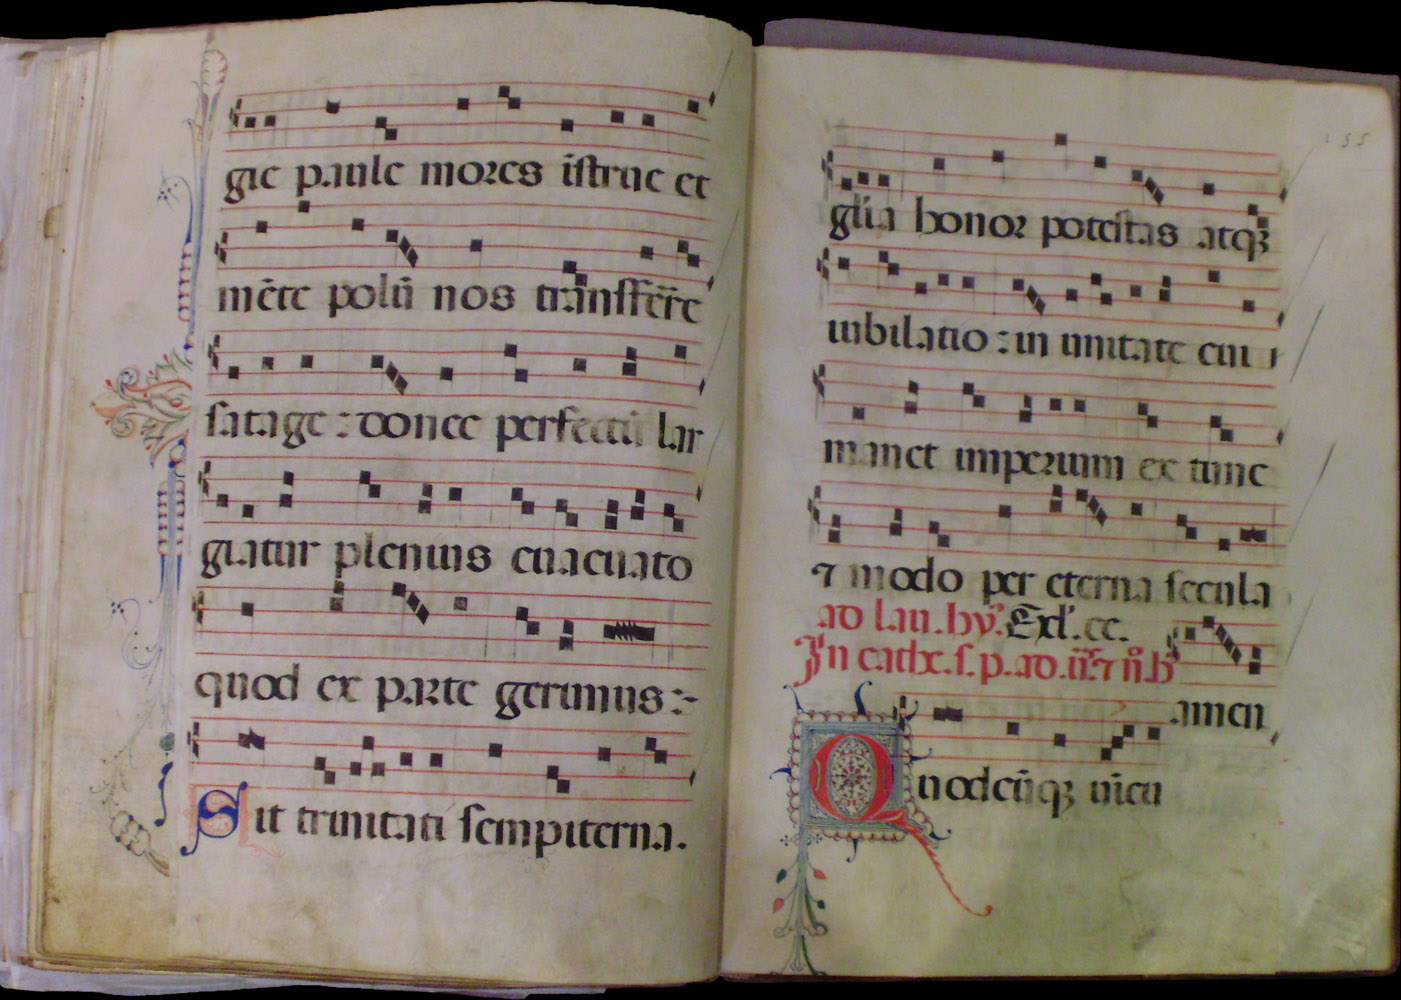 gie paule mores īstrue et
mēte polū nos trānsffērre
satage : donec perfectū lar
giatur plenius euacuato
quod ex parte gerimus :~
Sit trinitati sempiterna.
glīa honor potestas atqȝ
iubilatio : in unitate cui
manet imperium ex tunc
⁊ modo per eterna secula
ad lau. hy̾.
In cath. s. p. ad
amen
Quodcūqȝ uīcu